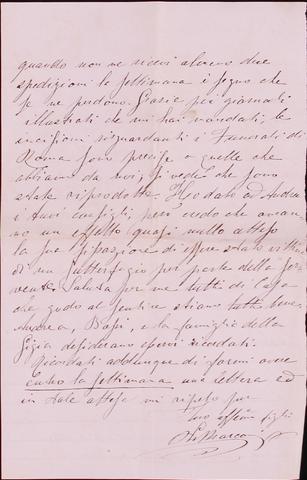 quando non ne ricevi almeno due
spedizioni la settimana è segno che
se ne perdono. Grazie pei giornali
illustrati che mi hai mandati, le
incisioni riguardanti i Funerali di
Roma sono precise a quelle che
abbiamo da noi, si vede che sono
state riprodotte. Ho dato ad Andrea
i tuoi consigli, però credo che avran
no un effetto quasi nullo atteso
la sua di essere stato vittima
di un sutterfugio per parte della
Saluta per me tutti di Casa
che godo al sentire stiano tutti bene
Andrea, Papi, e la famiglia della
Gigia desiderano esservi ricordati.
Ricordati addunque di farmi avere
Entro la settimana una lettera ed
in tale attesa mi ripeto pur
tuo affmo figlio